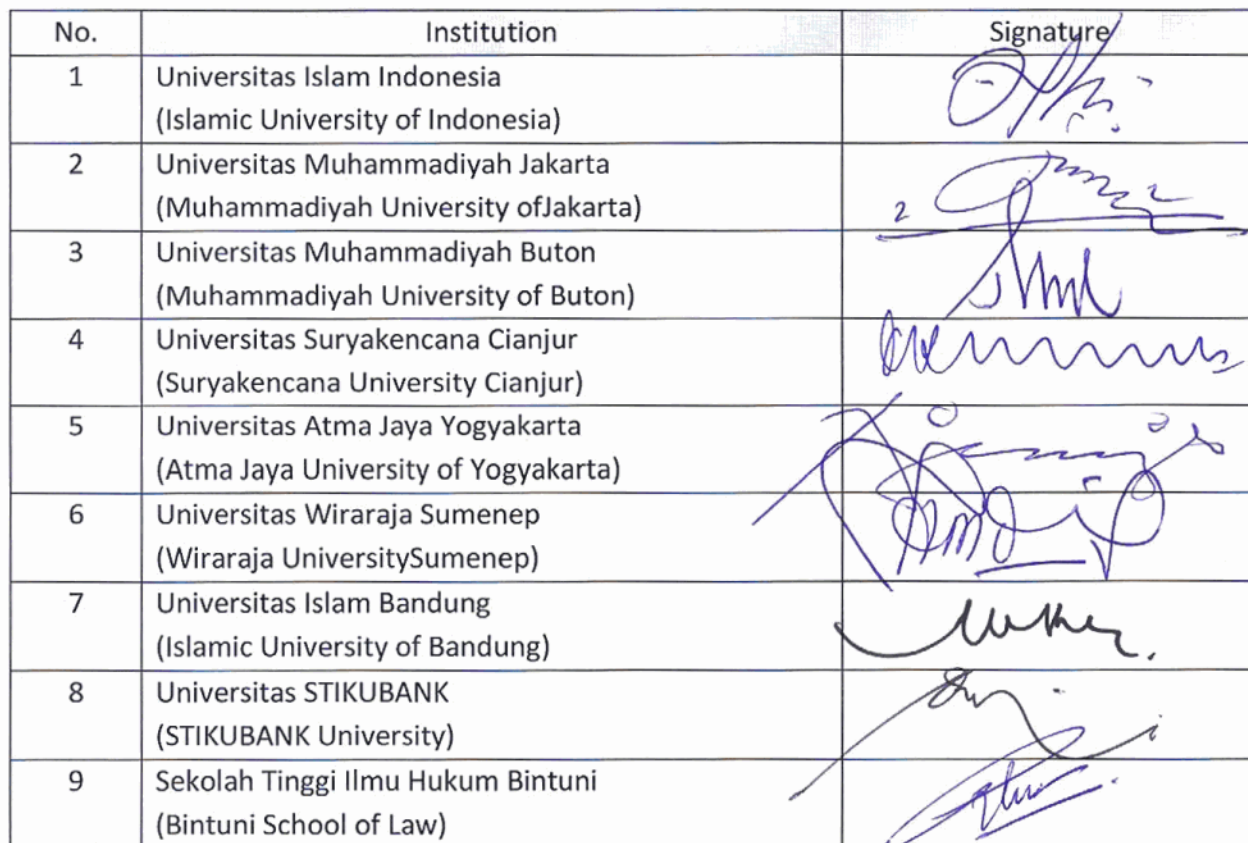 No. Institution Signature
1 Universitas Islam Indonesia
(Islamic University of Indonesia)
2 Universitas Muhammadiyah Jakarta
(Muhammadiyah University ofJakarta)
3 Universitas Muhammadiyah Buton
(Muhammadiyah University of Buton)
4 Universitas Suryakencana Cianjur
(Suryakencana University Cianjur)
5 Universitas Atma Jaya Yogyakarta
(Atma Jaya University of Yogyakarta)
6 Universitas Wiraraja Sumenep
(Wiraraja UniversitySumenep)
7 Universitas Islam Bandung
(Islamic University of Bandung)
8 Universitas STIKUBANK
(STIKUBANK University)
9 Sekolah Tinggi Ilmu Hukum Bintuni
(Bintuni School of Law)